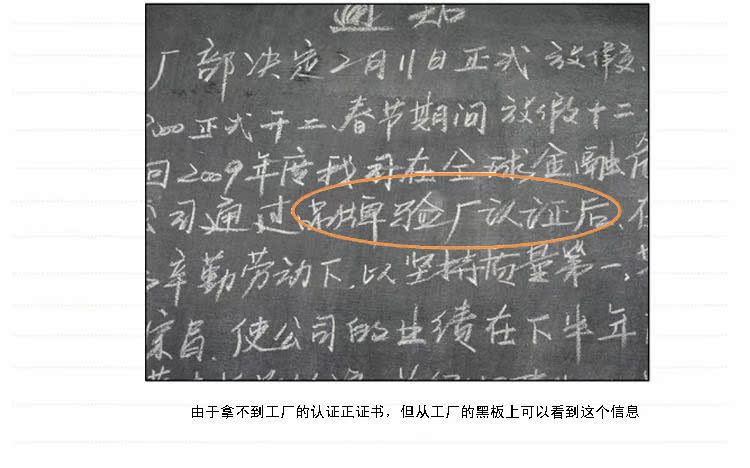 通知
厂部决定2月11日正式放假、
正式开工、春节期间放假十二
回2009年度我司在全球金融危
公司通过品牌验厂认证后、在
辛勤劳动下、以坚持质量第一、
宗旨、使公司的业绩在下半年
由于拿不到工厂的认证正证书，但从工厂的黑板上可以看到这个信息